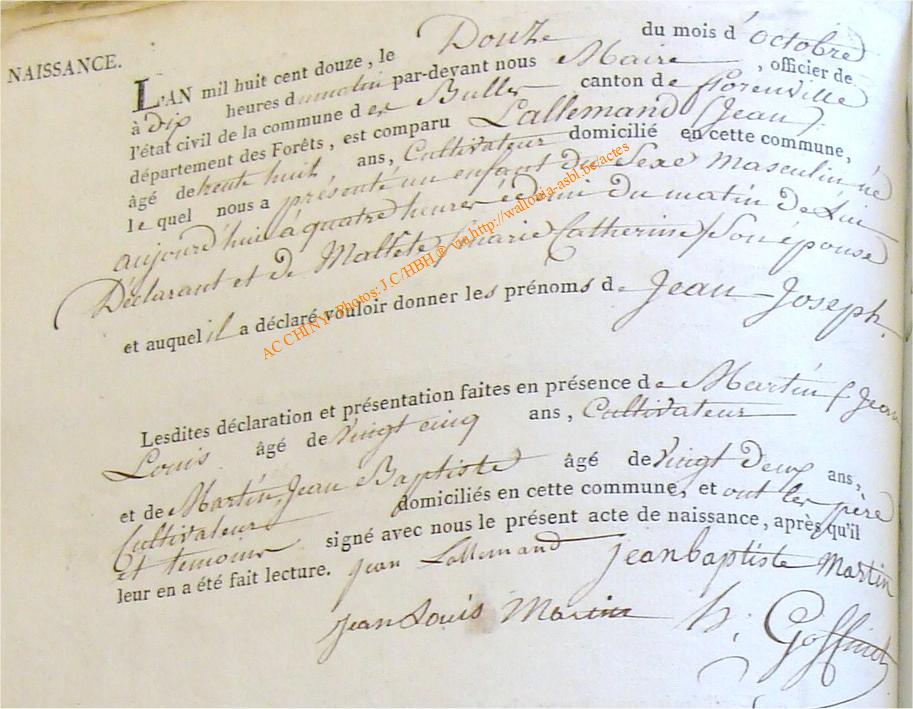 NAISSANCE.
L'AN mil huit cent douze, le Douze du mois d'octobre
à dix heures du matin par-devant nous Maire, officier de
l'état civil de la commune des Bulles canton de florenville
département des Forêts, est comparu Lallemand (Jean)
âgé de trente huit ans, Cultivateur domicilié en cette commune,
lequel nous a présenté un enfant du Sexe Masculin né
aujourd'hui à quatre heures & demi du matin de Lui
Déclarant et de Maltête (Marie Catherine) Son épouse
et auquel il a déclaré vouloir donner les prénoms de Jean-Joseph.
Lesdites déclaration et présentation faites en présence de Martin (Jean
Louis âgé de vingt cinq ans, Cultivateur
et de Martin Jean Baptiste âgé de vingt Deux ans,
Cultivateurs domiciliés en cette commune, et ont les père
et temoins signé avec nous le présent acte de naissance, après qu'il
leur en a été fait lecture. Jean Lallemand jeanbaptiste Martin
jean Louis Martin h: Goffinet
AC CHINY - Photos: J.C/HBH® via http://wallonia-asbl.be/actes